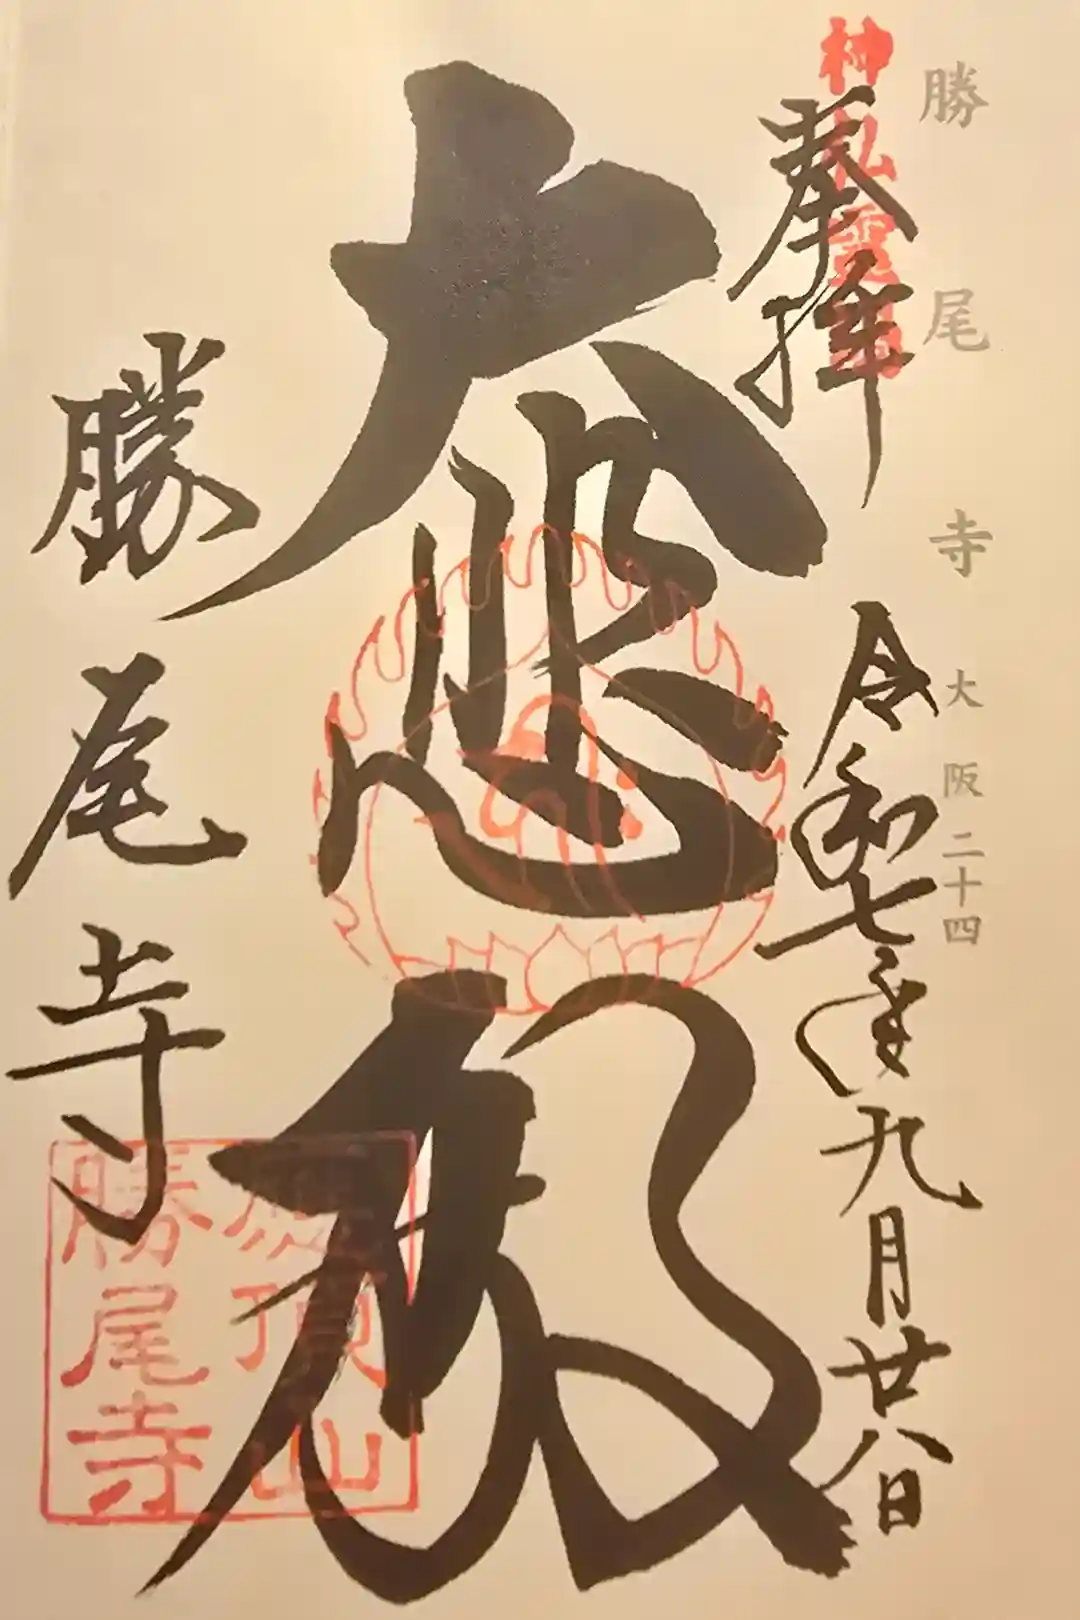 勝尾寺 大阪二十四
神仏霊場
奉拝
令和七年九月廿八日
大悲殿
勝尾寺
應頂山
勝尾寺